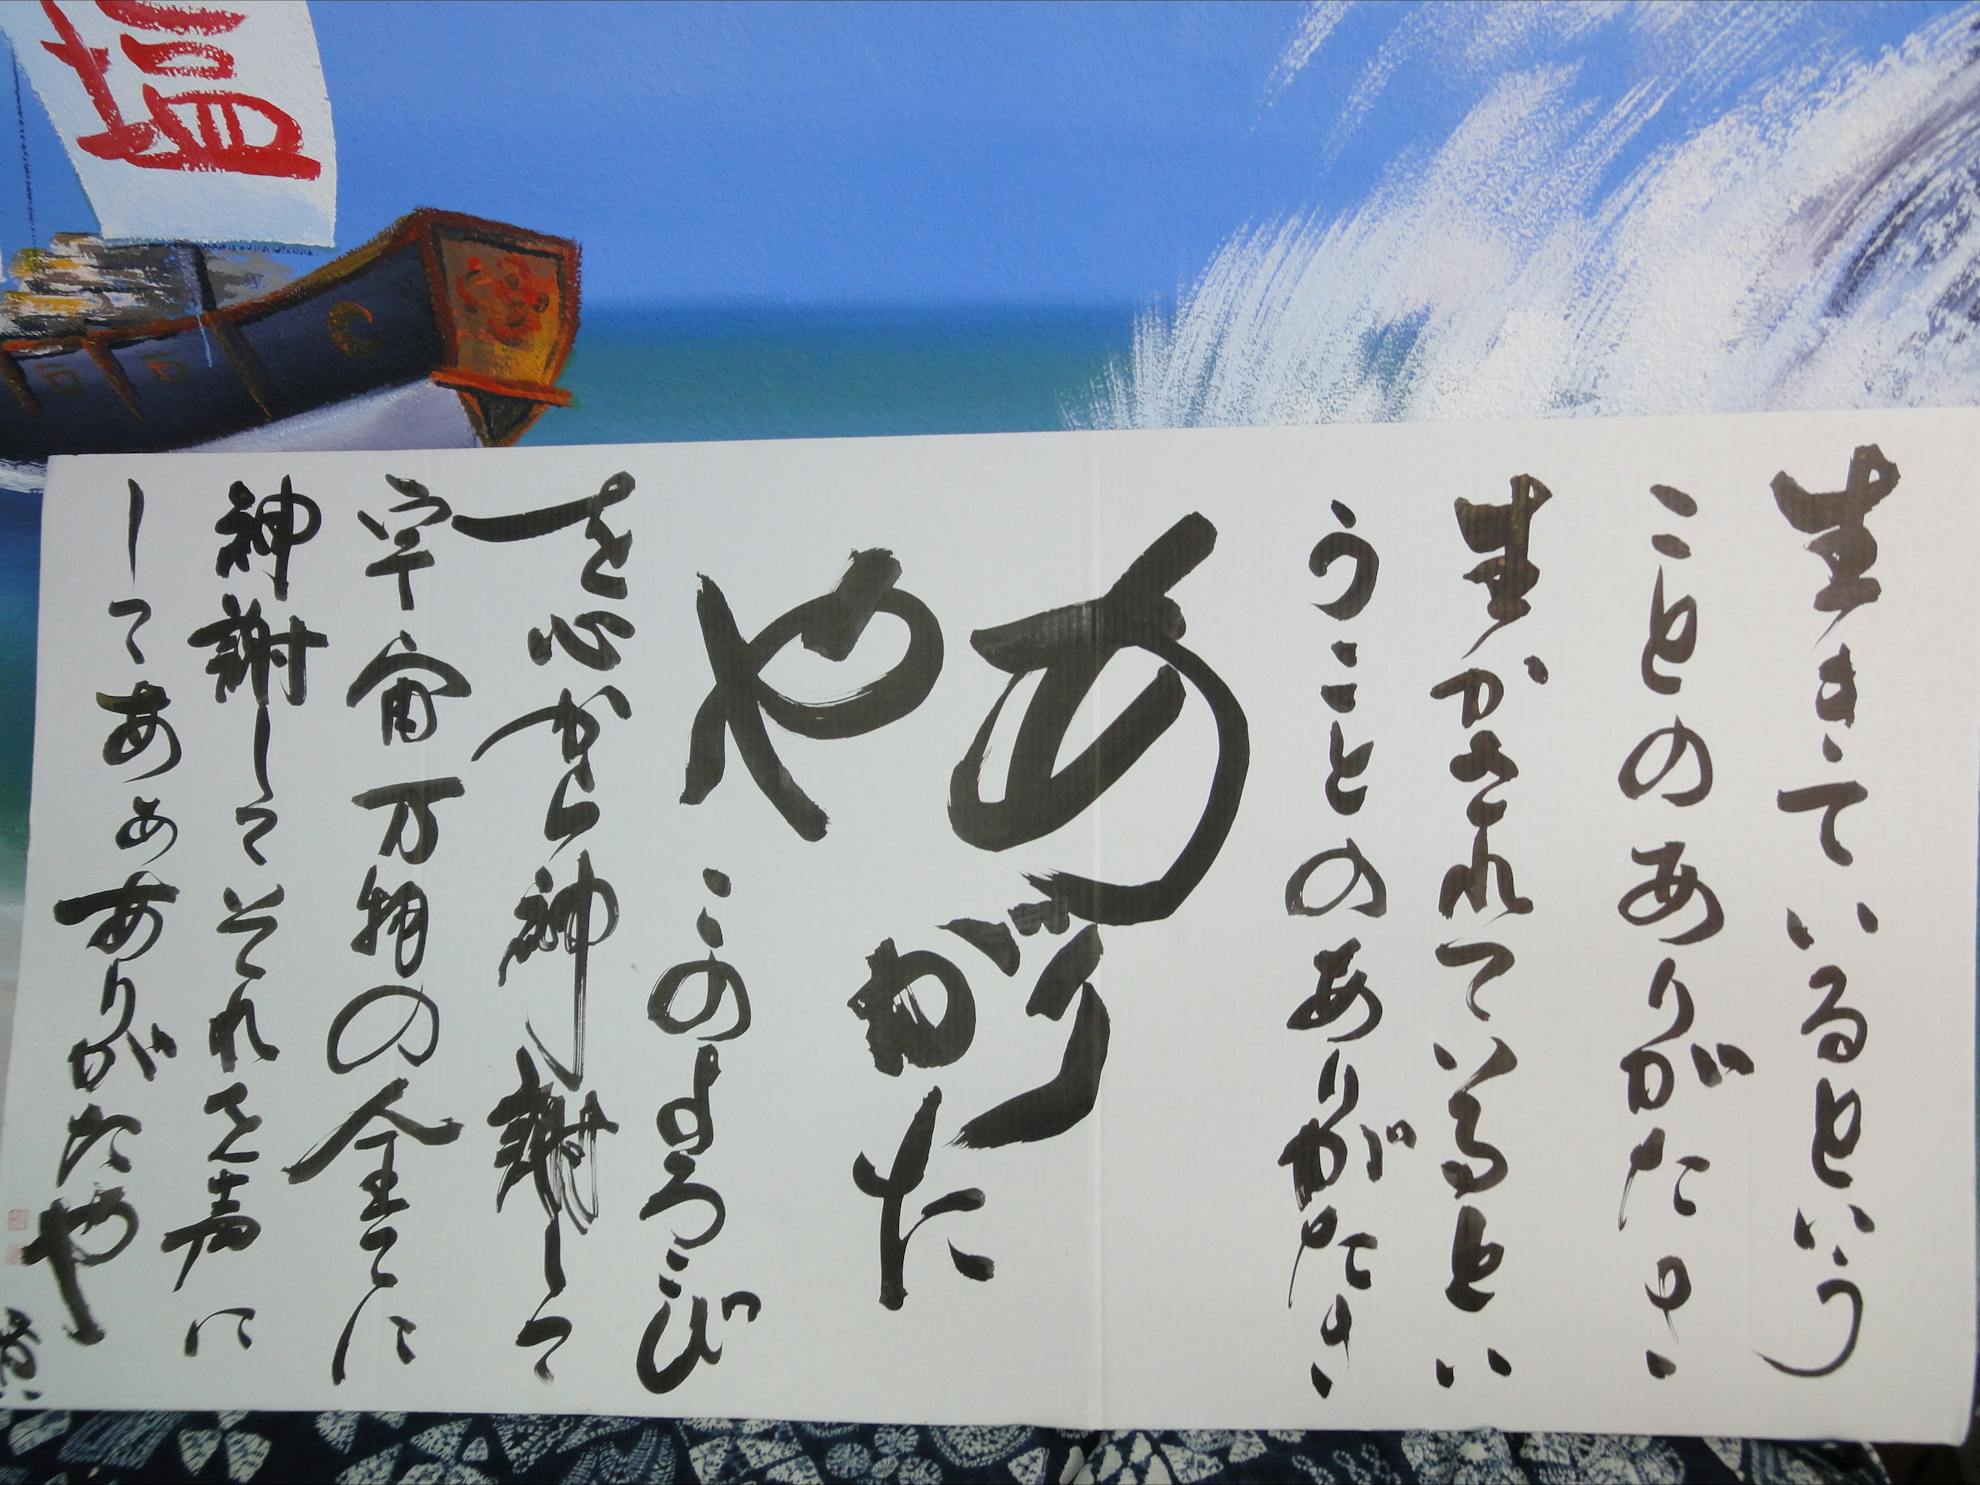 塩
生きているという
ことのありがたさ
生かされているとい
うことのありがたさ
あり
がた
や
このよろこび
を心から神謝して
宇宙万物の全てに
神謝してそれを声に
してあぁありがたや